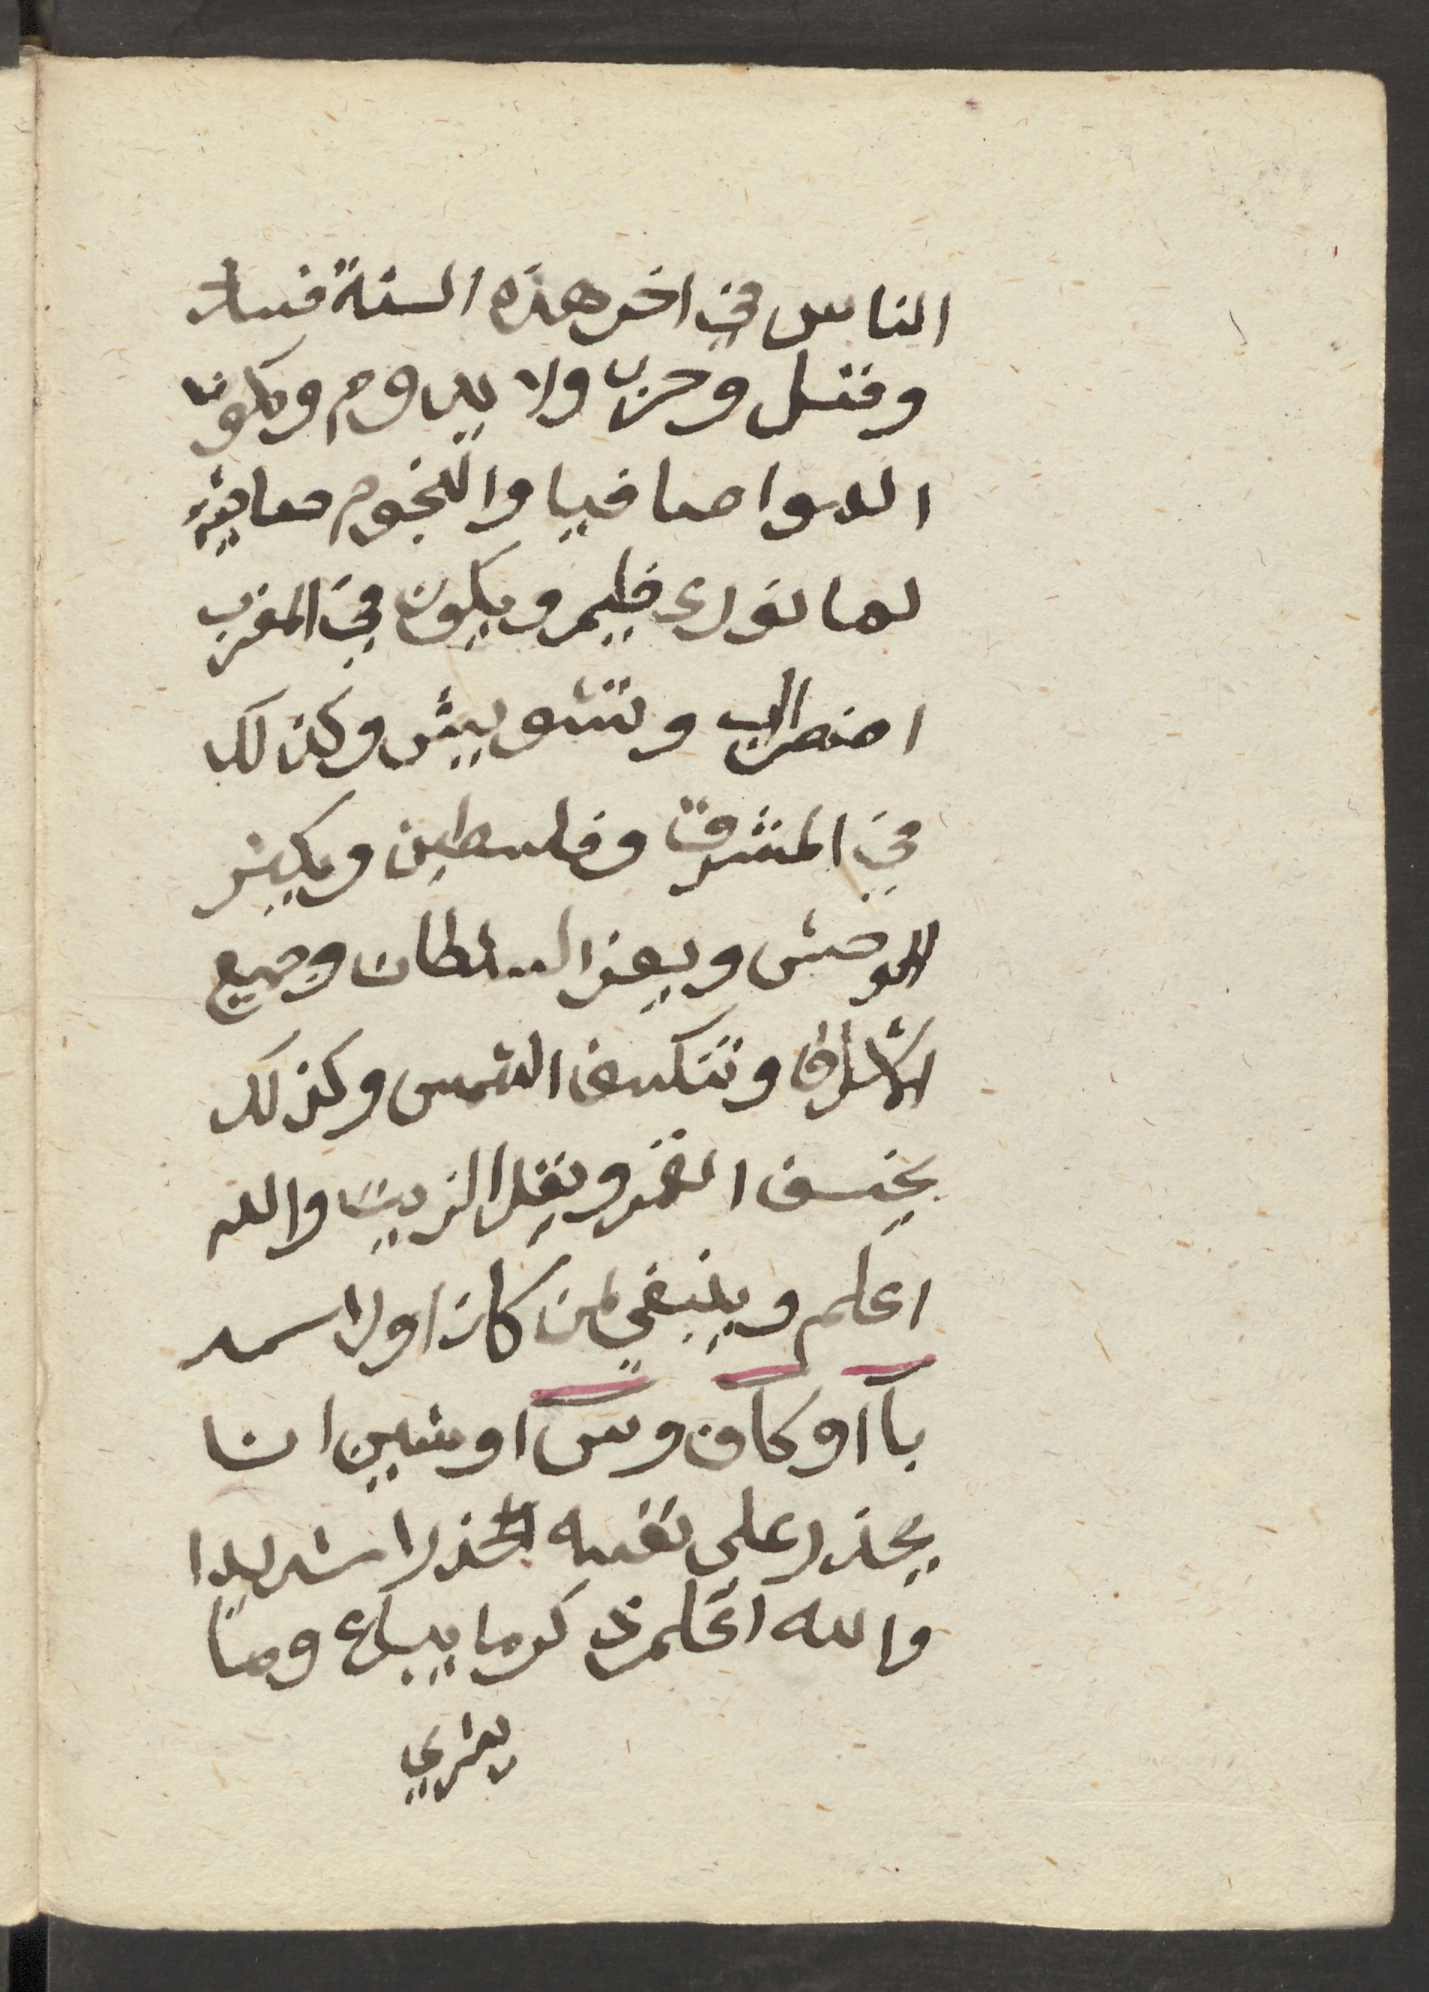 الناس في اخر هذه السنة فساد
وقتل وحرب ولا يدوم ويكون
الهوا صافيا والنجوم صافية
لها نور عظيم ويكون في المغرب
اضطراب وتشويش وكذلك
في المشرق وفلسطين ويكثر
الوحش ويعز السلطان وجميع
الاشراف وتنكسف الشمس وكذلك
يخسف القمر ويقل الزيت والله
اعلم وينبغي لمن كان اول اسمه
باآ او كاف وس او شين ان
يحذر على نفسه الحذر اشديدا
والله اعلم ذكر ما يباع وما
يعتري